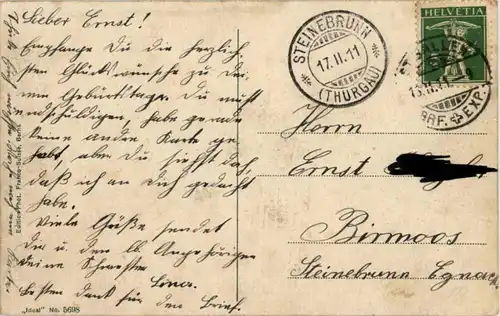 Lieber Ernst!
Empfange Du die herzlich
sten Glückwünsche zu Dei
nem Geburtstage. Du mußt
entschuldigen, habe gerade
keine andere Karte ge
habt, aber Du siehst doch
daß ich an dich gedacht
habe.
Viele Grüße sendet
Dir u. den lb. Angehörigen
Deine Schwester
Lina.
Besten Dank für den Brief.
"Ideal" No. 5698
STEINEBRUNN
17.II.11
(THURGAU)
HELVETIA
BRF. EXP.
Herrn
Ernst
Birmoos
Steinebrunn Egnach